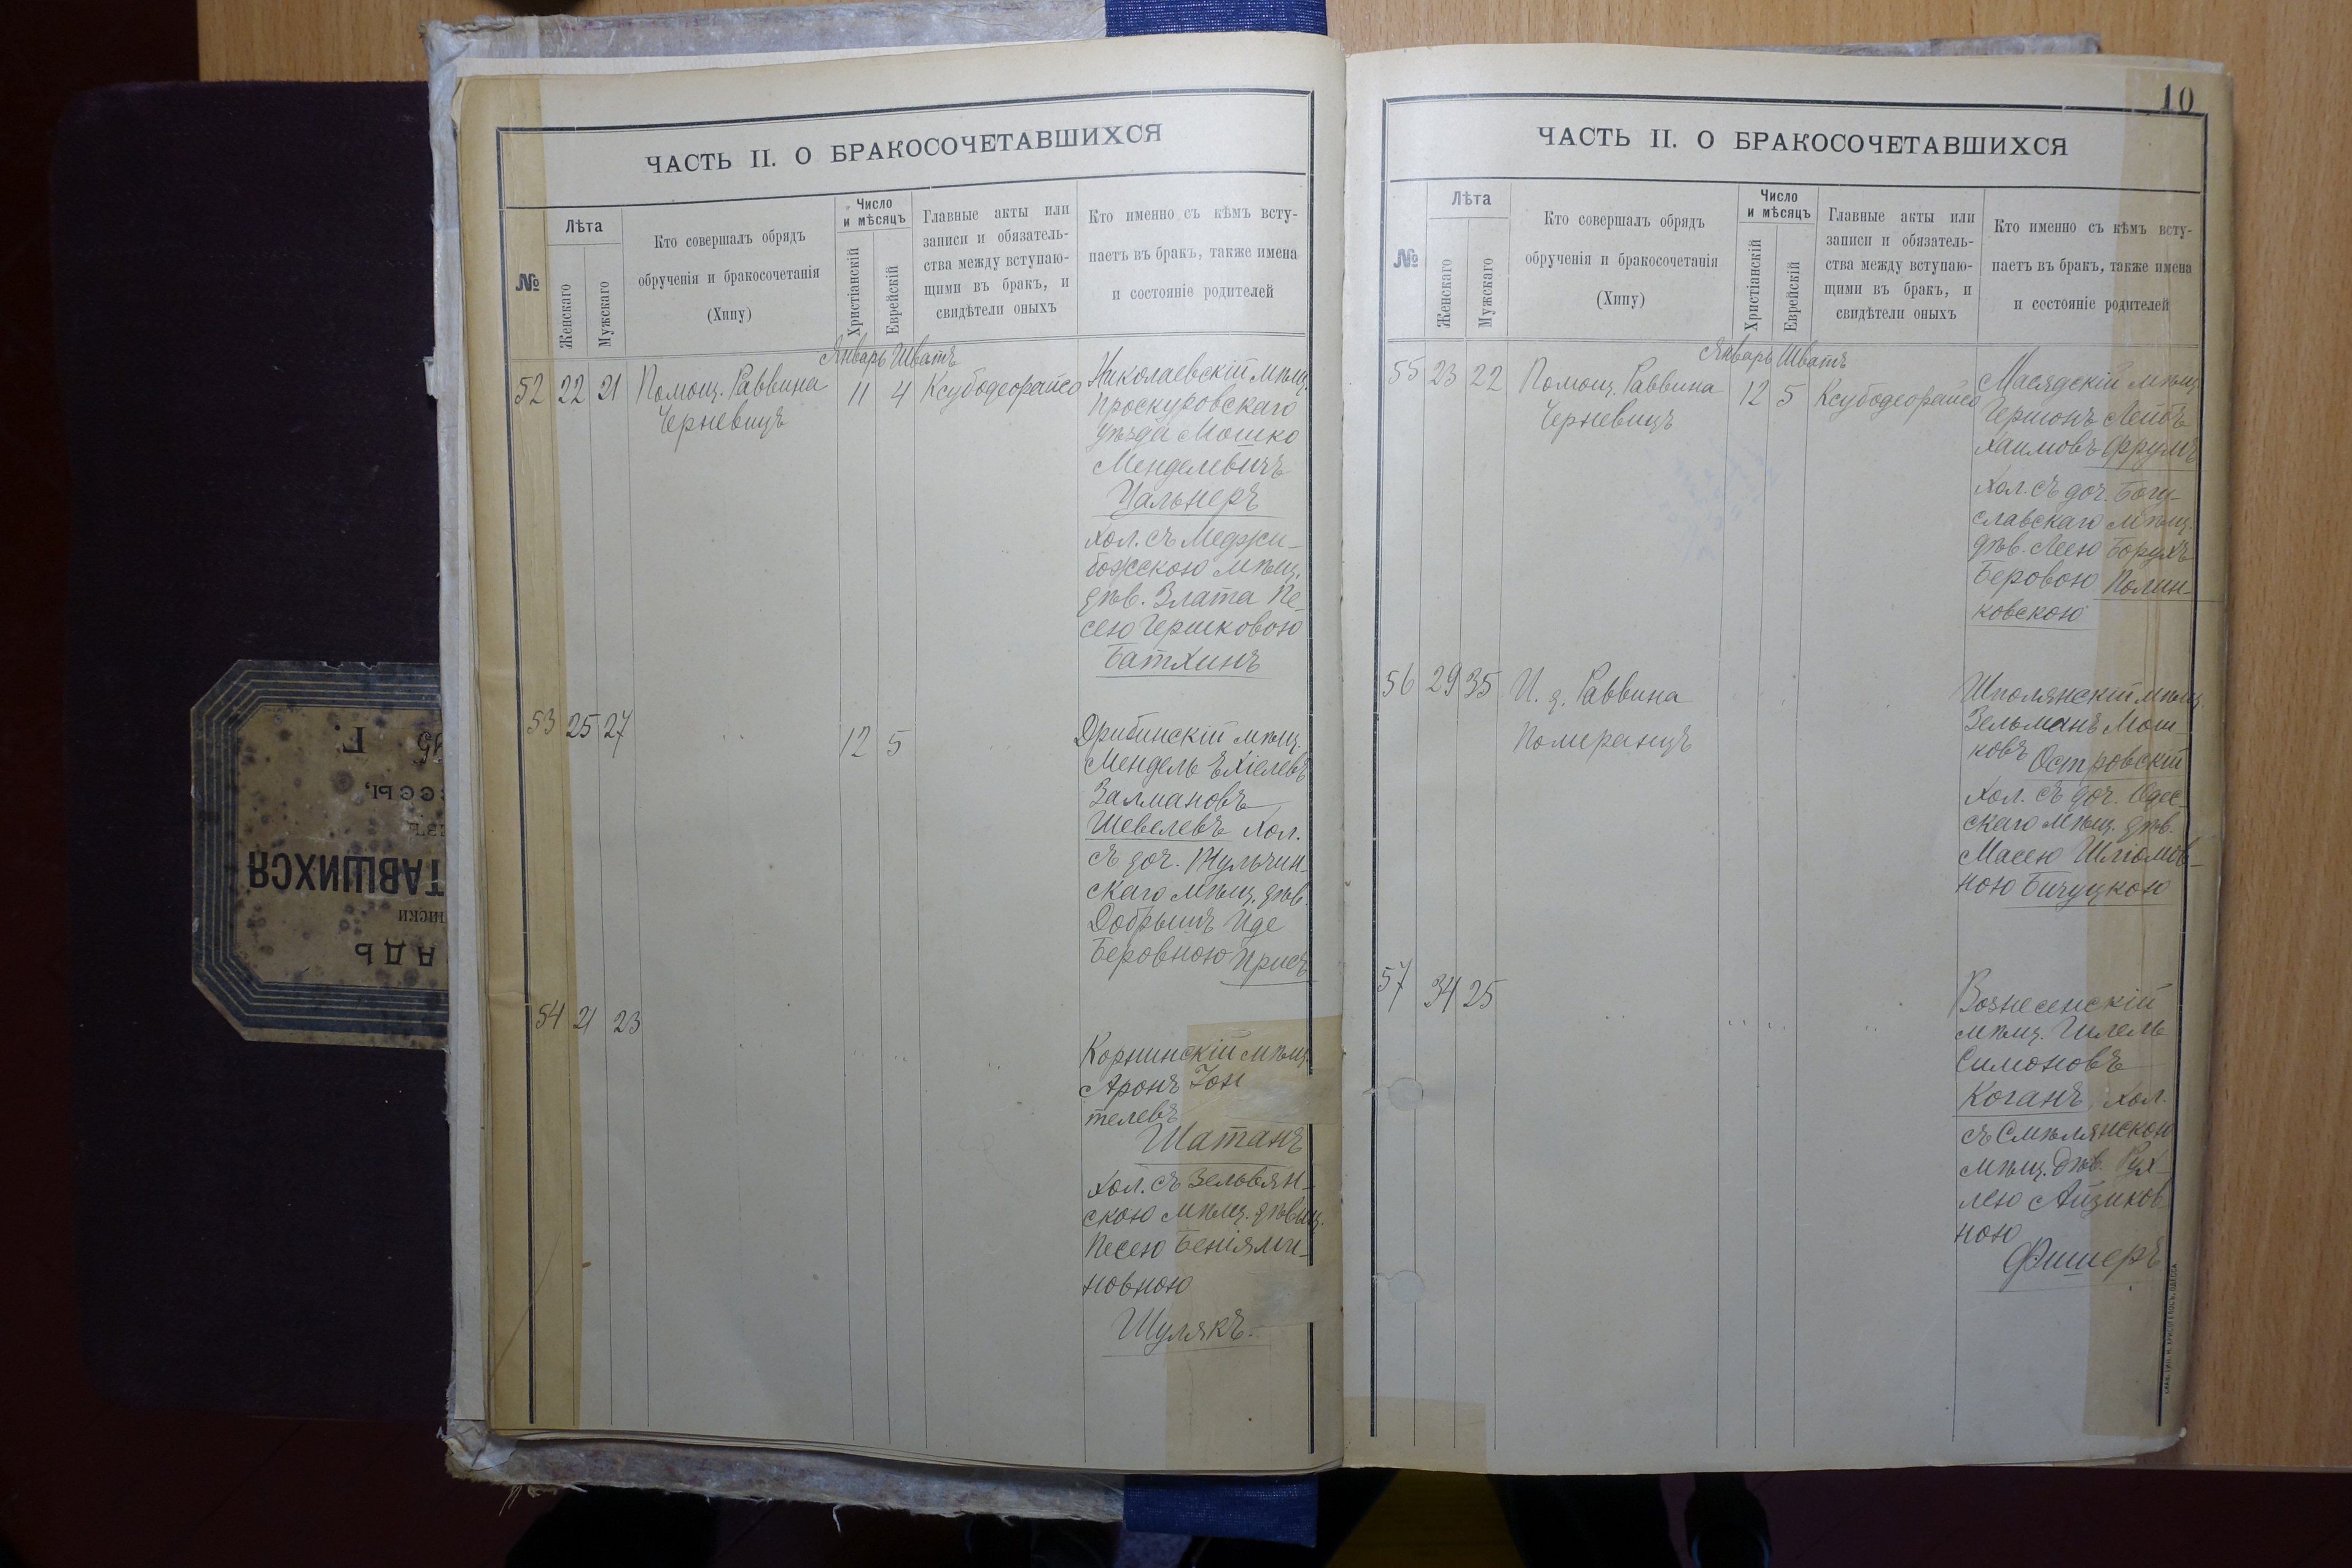 ЧАСТЬ II. О БРАКОСОЧЕТАВШИХСЯ
№
Лѣта
Женскаго
Мужскаго
Кто совершалъ обрядъ
обрученія и бракосочетанія
(Хипу)
Число
и мѣсяцъ
Христіанскій
Еврейскій
Главные акты или
записи и обязатель-
ства между вступаю-
щими въ бракъ, и
свидѣтели оныхъ
Кто именно съ кѣмъ всту-
паетъ въ бракъ, также имена
и состояніе родителей
Январь Шватъ
52 22 21 Помощ. Раввина 11 4 Ксубодеорайсо
Черневицъ
Николаевскій мѣщ.
Проскуровскаго
уѣзда Мошко
Менделевичъ
Цальнеръ
хол. съ Меджи-
божскою мѣщ.
дѣв. Злата Пе-
сею Гершковою
Батхинъ
53 25 27 12 5
Дрибинскій мѣщ.
Мендель Ехіелевъ
Залмановъ
Шевелевъ хол.
съ доч. Тульчин-
скаго мѣщ. дѣв.
Добрышъ Иде
Беровною Присъ
54 21 23
Корнинскій мѣщ.
Аронъ Зон
телевъ
Шатанъ
хол. съ Зельвян-
скою мѣщ. дѣвиц.
Песею Беніями-
новною
Шулякъ.
10
ЧАСТЬ II. О БРАКОСОЧЕТАВШИХСЯ
№
Лѣта
Женскаго
Мужскаго
Кто совершалъ обрядъ
обрученія и бракосочетанія
(Хипу)
Число
и мѣсяцъ
Христіанскій
Еврейскій
Главные акты или
записи и обязатель-
ства между вступаю-
щими въ бракъ, и
свидѣтели оныхъ
Кто именно съ кѣмъ всту-
паетъ въ бракъ, также имена
и состояніе родителей
Январь Шватъ
55 23 22 Помощ. Раввина 12 5 Ксубодеорайсо
Черневицъ
мѣщ.
Гершонъ Лейбъ
Хаимовъ Фрумъ
хол. съ доч. Богу-
славскаго мѣщ.
дѣв. Леею Борухъ
Беровою Полин-
ковскою
56 29 35 И. д. Раввина
Померанцъ
Шполянскій мѣщ.
Зельманъ Мош-
ковъ Островскій
хол. съ доч. Одес-
скаго мѣщ. дѣв.
Масею Шліомов-
ною Бичуцкою
57 34 25
Вознесенскій
мѣщ. Гилель
Симоновъ
Коганъ, хол.
съ Смѣлянскою
мѣщ. дѣв. Рух-
лею Айзиков-
ною
Фишеръ